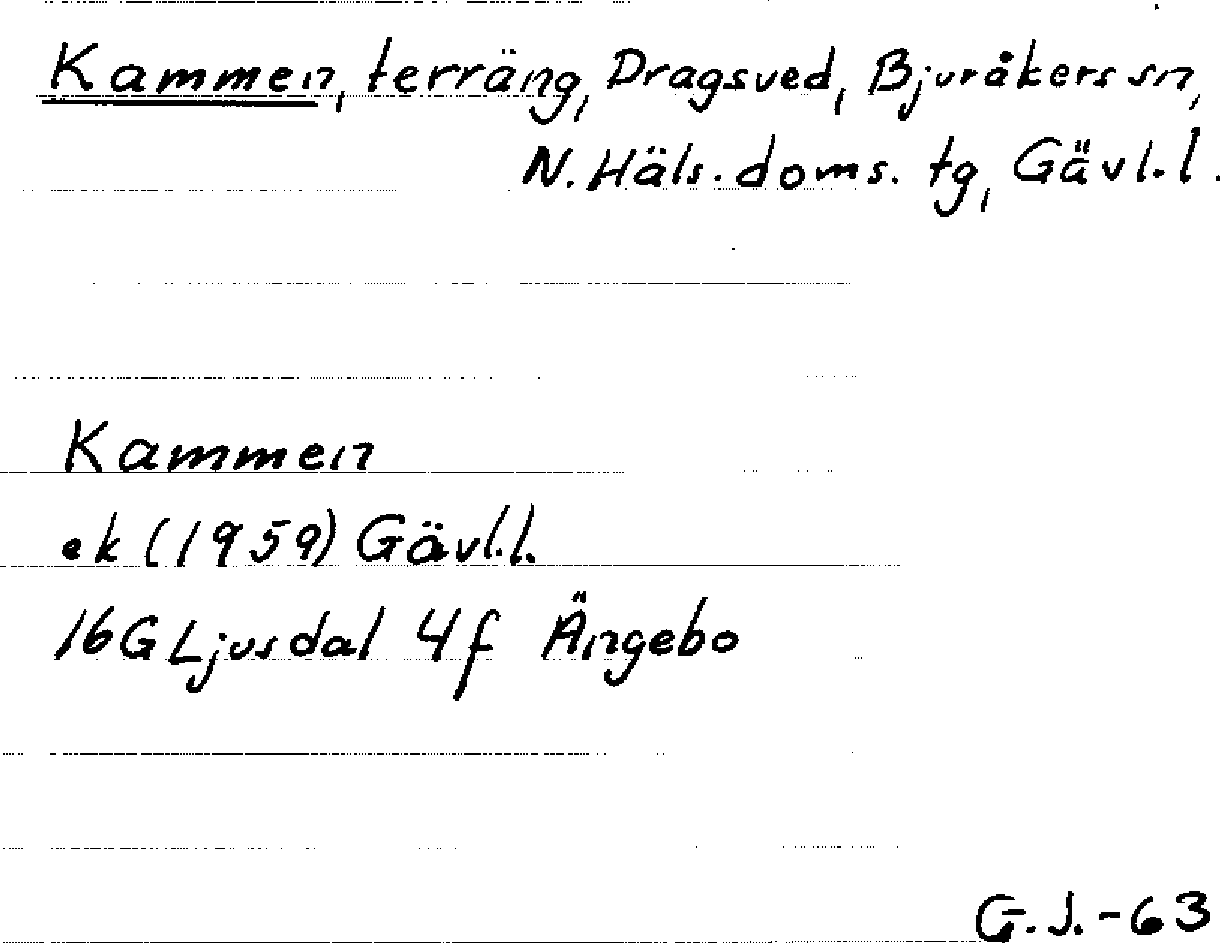 Kammen, terräng, Dragsved, Bjuråkers sn,
N. Häls. doms. tg, Gävl. l.
Kammen
ek (1959) Gävl. l.
16G Ljusdal 4f Ängebo
G. J. -63